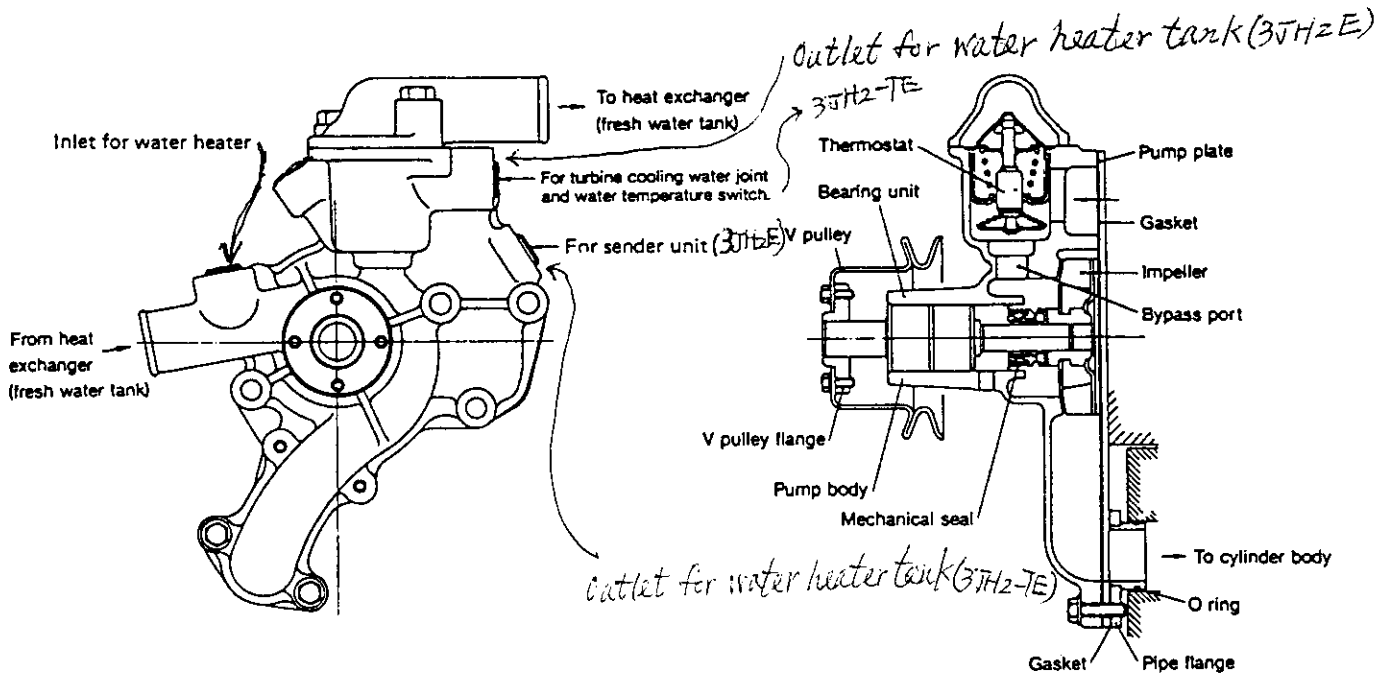 Outlet for water heater tank (3JH2E)
3JH2-TE
To heat exchanger
(fresh water tank)
Inlet for water heater
For turbine cooling water joint
and water temperature switch.
For sender unit (3JH2E)
From heat
exchanger
(fresh water tank)
Outlet for water heater tank (3JH2-TE)
Thermostat
Bearing unit
V pulley
Pump plate
Gasket
Impeller
Bypass port
V pulley flange
Pump body
Mechanical seal
To cylinder body
O ring
Gasket
Pipe flange